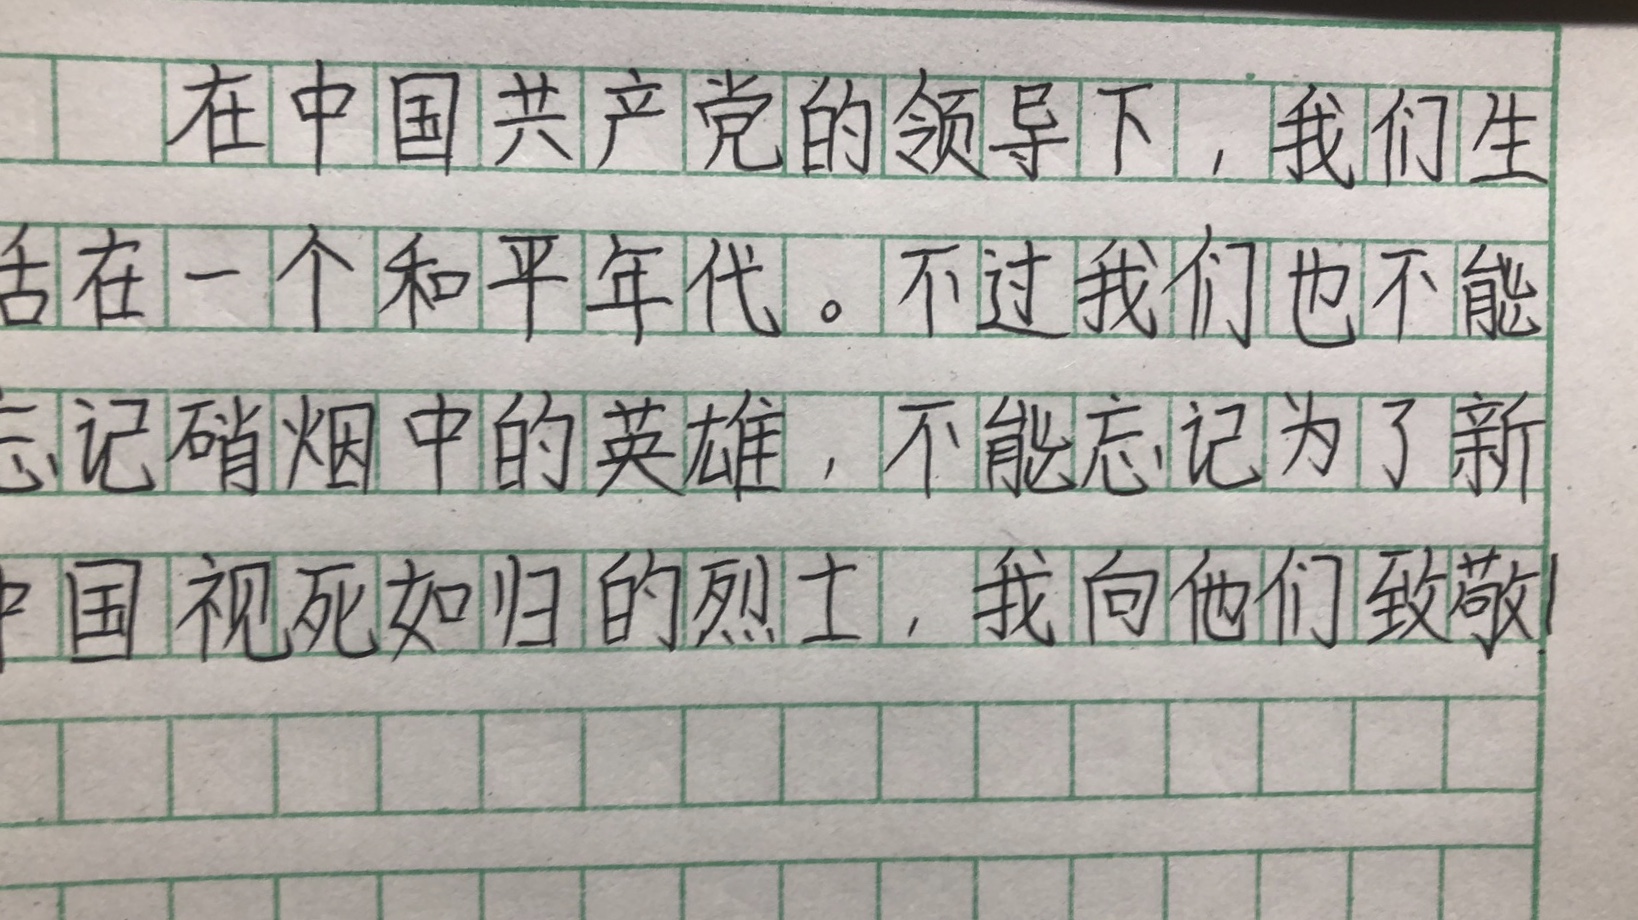 在中国共产党的领导下，我们生
活在一个和平年代。不过我们也不能
忘记硝烟中的英雄，不能忘记为了新
中国视死如归的烈士，我向他们致敬！